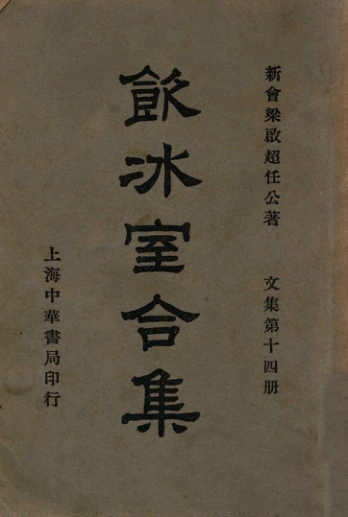 新會梁啟超任公著
文集第十四册
飲冰室合集
上海中華書局印行